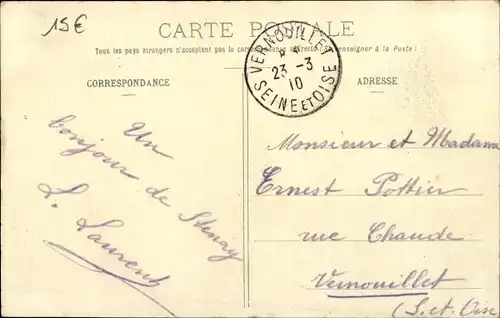 15€
CARTE POSTALE
Tous les pays étrangers n'acceptent pas la correspondance au recto (Se renseigner à la Poste)
VERNOUILLET
23 -3
10
SEINE ET OISE
CORRESPONDANCE
ADRESSE
Un
bonjour de Stenay
L. Laurent
Monsieur et Madame
Ernest Pottier
rue Chaude
Vernouillet
(S. et Oise